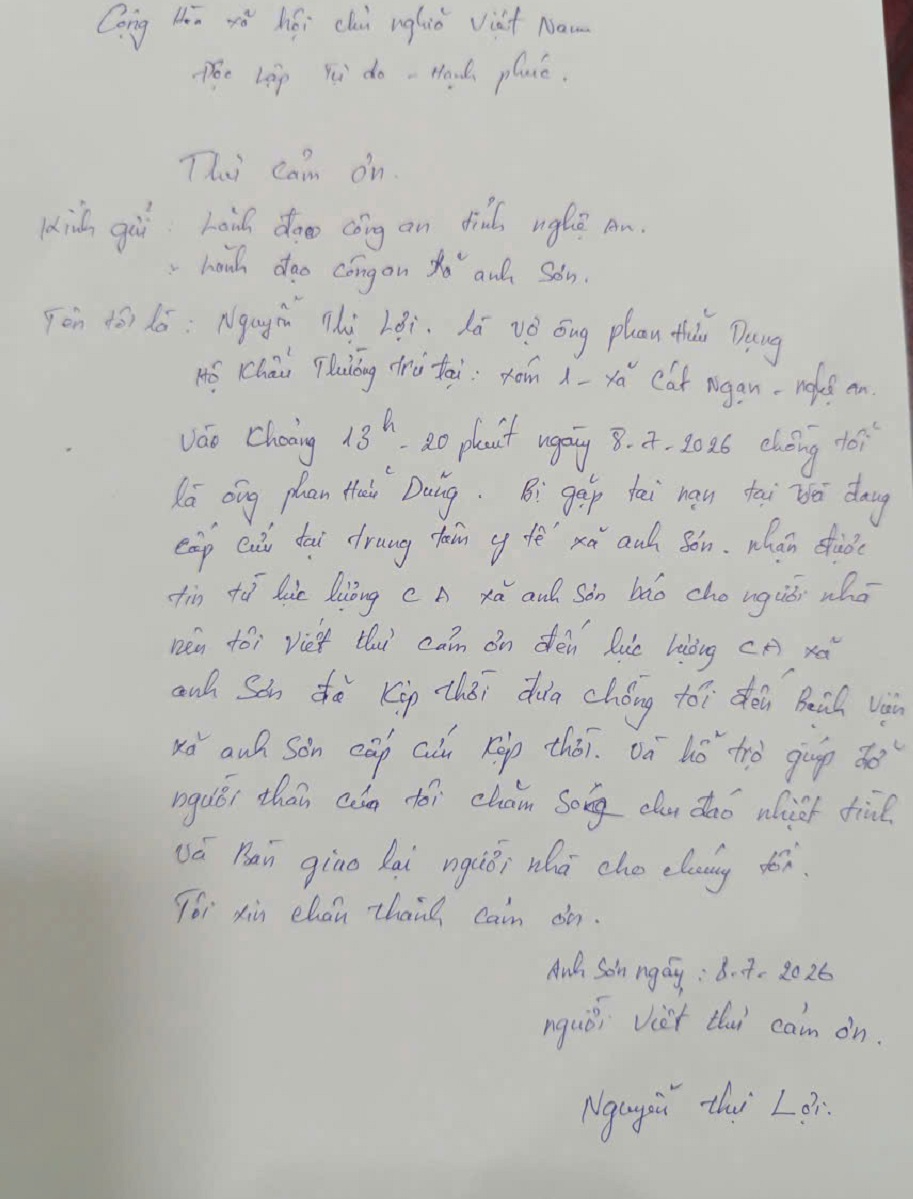 Cộng Hòa xã hội chủ nghĩa Việt Nam
Độc Lập Tự do - Hạnh phúc.
Thư cảm ơn.
Kính gửi : Lãnh đạo công an tỉnh nghệ An.
- Lãnh đạo công an xã anh Sơn.
Tên tôi là : Nguyễn Thị Lợi. là vợ ông phan Hữu Dụng
Hộ Khẩu Thường trú tại : xóm 1 - xã Cát Ngạn - nghệ an.
Vào Khoảng 13h - 20 phút ngày 8-7-2026 chồng tôi
là ông phan Hữu Dũng. Bị gặp tai nạn tại đang
cấp cứu tại trung tâm y tế xã anh Sơn. nhận được
tin từ lực lượng CA xã anh Sơn báo cho người nhà
nên tôi viết thư cảm ơn đến lực lượng CA xã
anh Sơn đã Kịp thời đưa chồng tôi đến Bệnh viện
xã anh Sơn cấp cứu Kịp thời. và hỗ trợ giúp đỡ
người thân của tôi chăm Sóc chu đáo nhiệt tình
và Bàn giao lại người nhà cho chúng tôi.
Tôi xin chân thành cảm ơn.
Anh Sơn ngày : 8-7-2026
người viết thư cảm ơn.
Nguyễn thị Lợi.